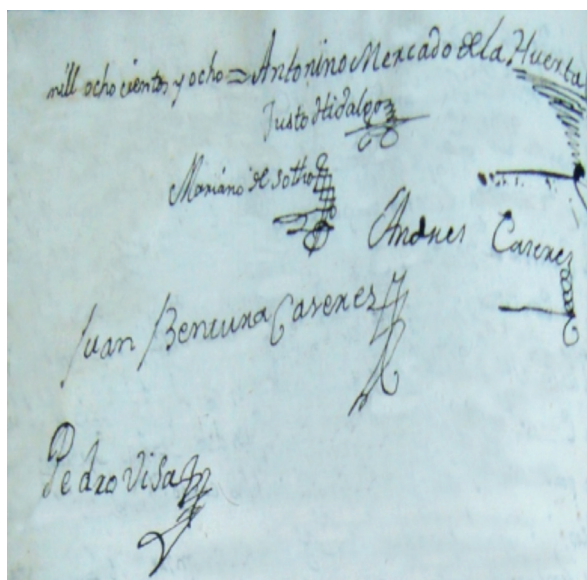 mill ocho cientos y ocho = Antonino Mercado de la Huerta
Justo Hidalgo
Mariano de Sotto
Andres Caseres
Juan Bentura Caseres
Pedro Visa